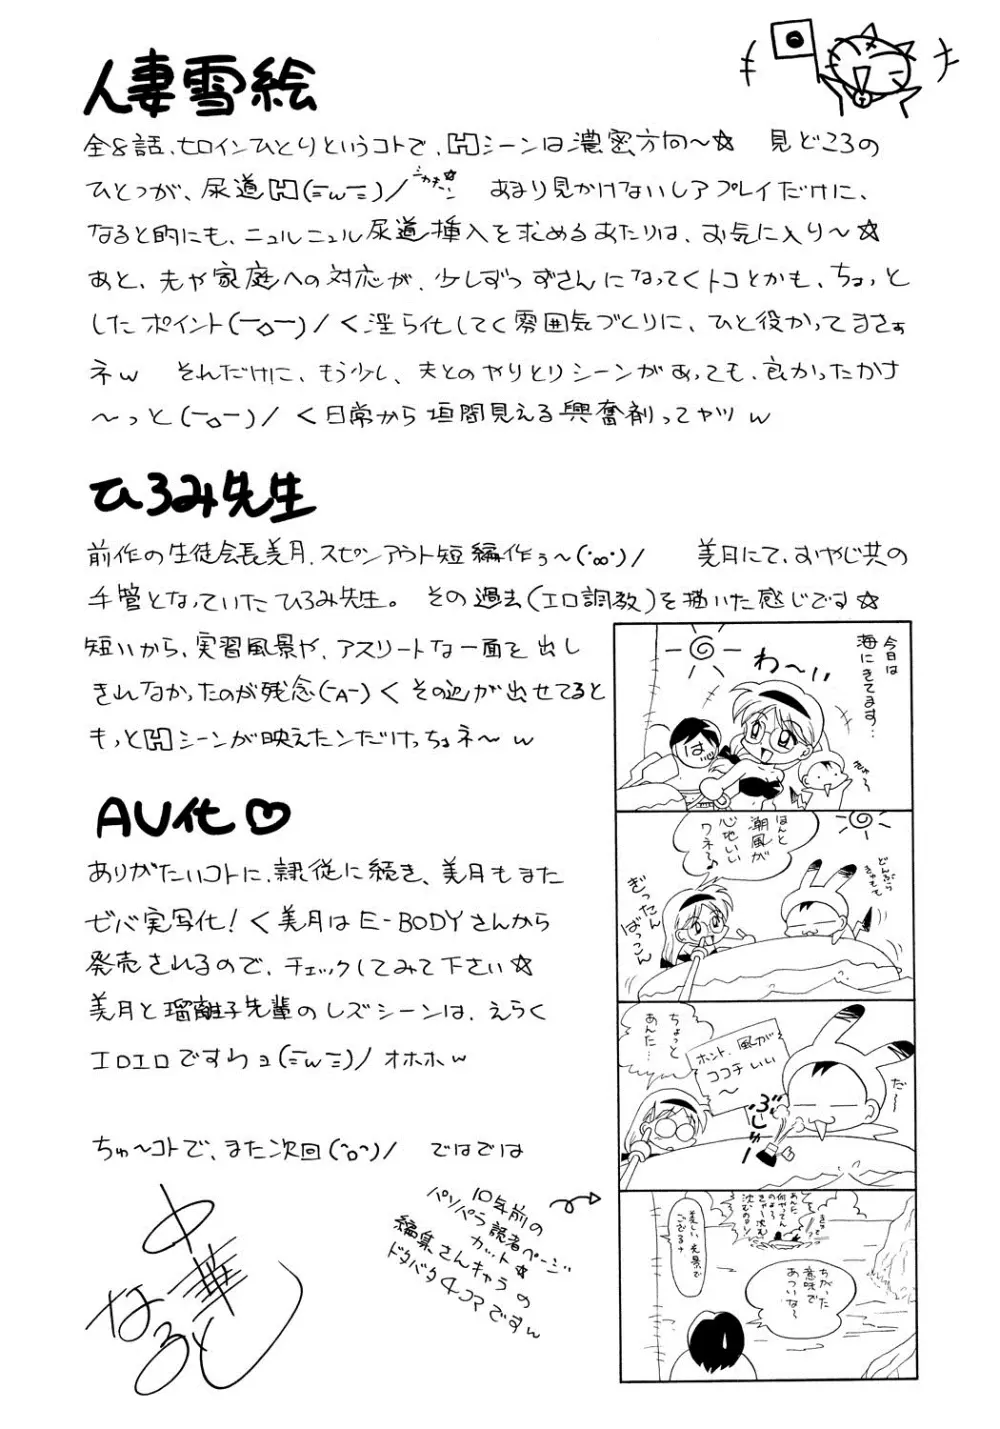 人妻雪絵
全8話、ヒロインひとりというコトで、Hシーンは濃密方向～☆ 見どころの
ひとつが、尿道H(ミwミ)/ あまり見かけないレアプレイだけに、
なると的にも、ニュルニュル尿道挿入を求めるあたりは、お気に入り～☆
あと、夫や家庭への対応が、少しずつずさんになってくトコとかも、ちょっと
したポイント(￣o￣)/ く淫ら化してく雰囲気づくりに、ひと役かってまさぁ
ネw それだけに、もう少し、夫とのやりとりシーンがあっても、良かったかな
～っと(￣o￣)/ く日常から垣間見える興奮剤ってヤツw
ひろみ先生
前作の生徒会長美月、スピンアウト短編作ぅ～(・∞・)/ 美月にて、おやじ共の
手管となっていたひろみ先生。その過去(エロ調教)を描いた感じです☆
短いから、実習風景や、アスリートな一面を出し
きれなかったのが残念(￣A￣) くその辺が出せてると
もっとHシーンが映えたンだけっちょネ～w
AV化♡
ありがたいコトに、隷従に続き、美月もまた
ゼバ実写化！く美月はE-BODYさんから
発売されるので、チェックしてみて下さい☆
美月と瑠璃子先輩のレズシーンは、えらく
エロエロですわョ(ミwミ)/ オホホw
ちゅ～コトで、また次回(^o^)/ ではでは
中華
なると
10年前の
パソパラ読者ページ
カット☆
編集さんキャラの
ドタバタ4コマですw
今日は
海にきてます…
わ～い
ぱ
きゃ～
ほんと
潮風が
心地いい
ワネ♪
ぎったん
ばっこん
どんぶら
ちょっと
あんた…
ホント、風が
ココチいい
～
だ～
ぶしゅー
美しい光景で
ござるナ
あんた
何やってん
のよ～
きゃー沈む
沈むのョ！
ちがった
意味で
あついな～